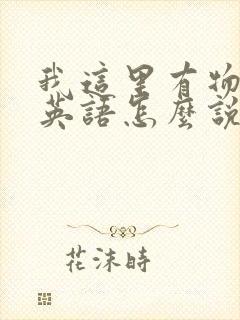 我這里有物
英語怎麼說
花沫時